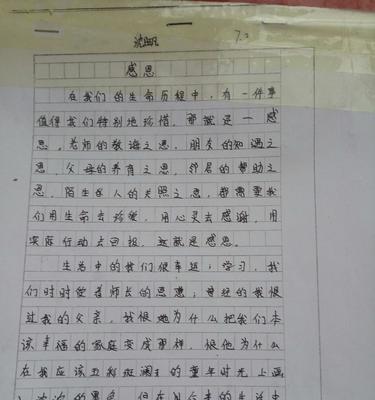 7.2
感恩
在我们的生命历程中,有一件事
值得我们特别地珍惜,那就是一感
恩。老师的教诲之恩,朋友的知遇之
恩,父母的养育之恩,邻居的帮助之
恩,陌生人的关照之恩,都需要我
们用生命去珍爱,用心灵去感谢,用
实际行动去回报,这就是感恩。
生活中的我们很幸运;学习,我
们时时受着师长的恩惠;曾经的我恨
过我的父亲,我恨他为什么把我们本
该幸福的家庭变成那样,恨他为什么
在我应该五彩斑斓的童年时光上画
但在
生活中